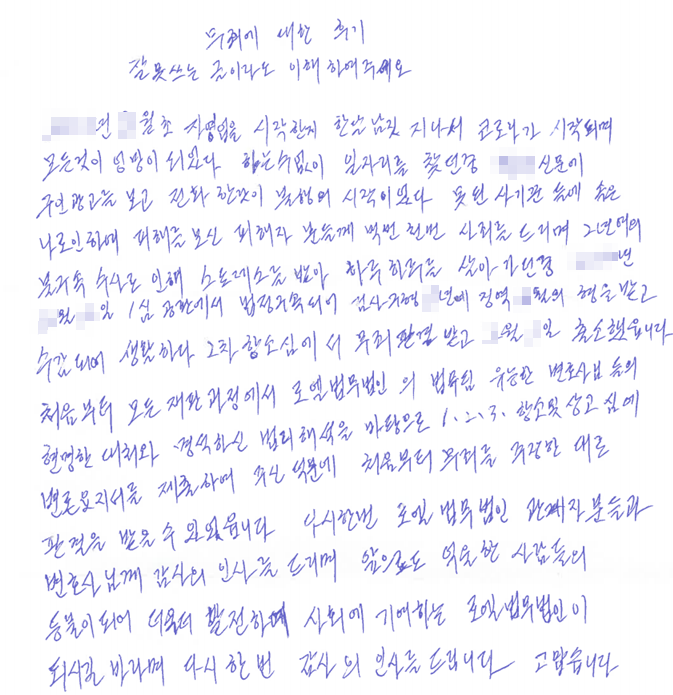 무죄에 대한 후기
잘못쓰는 글이라도 이해하여주세요
년 월초 자영업을 시작한지 한달남짓 지나서 코로나가 시작되며
모든것이 엉망이 되었다 하는수없이 일자리를 찾던중 신문에
구인광고를 보고 전화 한것이 불행의 시작이었다 못된 사기꾼 들에 속은
나로인하여 피해를 보신 피해자 분들께 백번 천번 사죄를 드리며 그년여의
불구속 수사로 인해 스트레스를 받아 하루하루를 살아가던중 년
월 일 1심 공판에서 법정구속되어 검사구형 년에 징역 월의 형을 받고
수감되어 생활하다 2차 항소심에서 무죄판결 받고 월 일 출소했읍니다
처음부터 모든 재판과정에서 로엘법무법인 의 법무팀 유능한 변호사님 들의
현명한 대처와 해석을 바탕으로 1.2.3. 항소및 상고심에
변론요지서를 제출하여 주신 덕분에 처음부터 무죄를 주장한 대로
판결을 받을수 있었읍니다 다시한번 로엘 법무법인 관계자분들과
변호사님께 감사의 인사를 드리며 앞으로도 억울한 사람들의
등불이되어 더욱더 발전하여 사회에 기여하는 로엘법무법인이
되시길 바라며 다시 한번 감사의 인사를 드립니다 고맙습니다